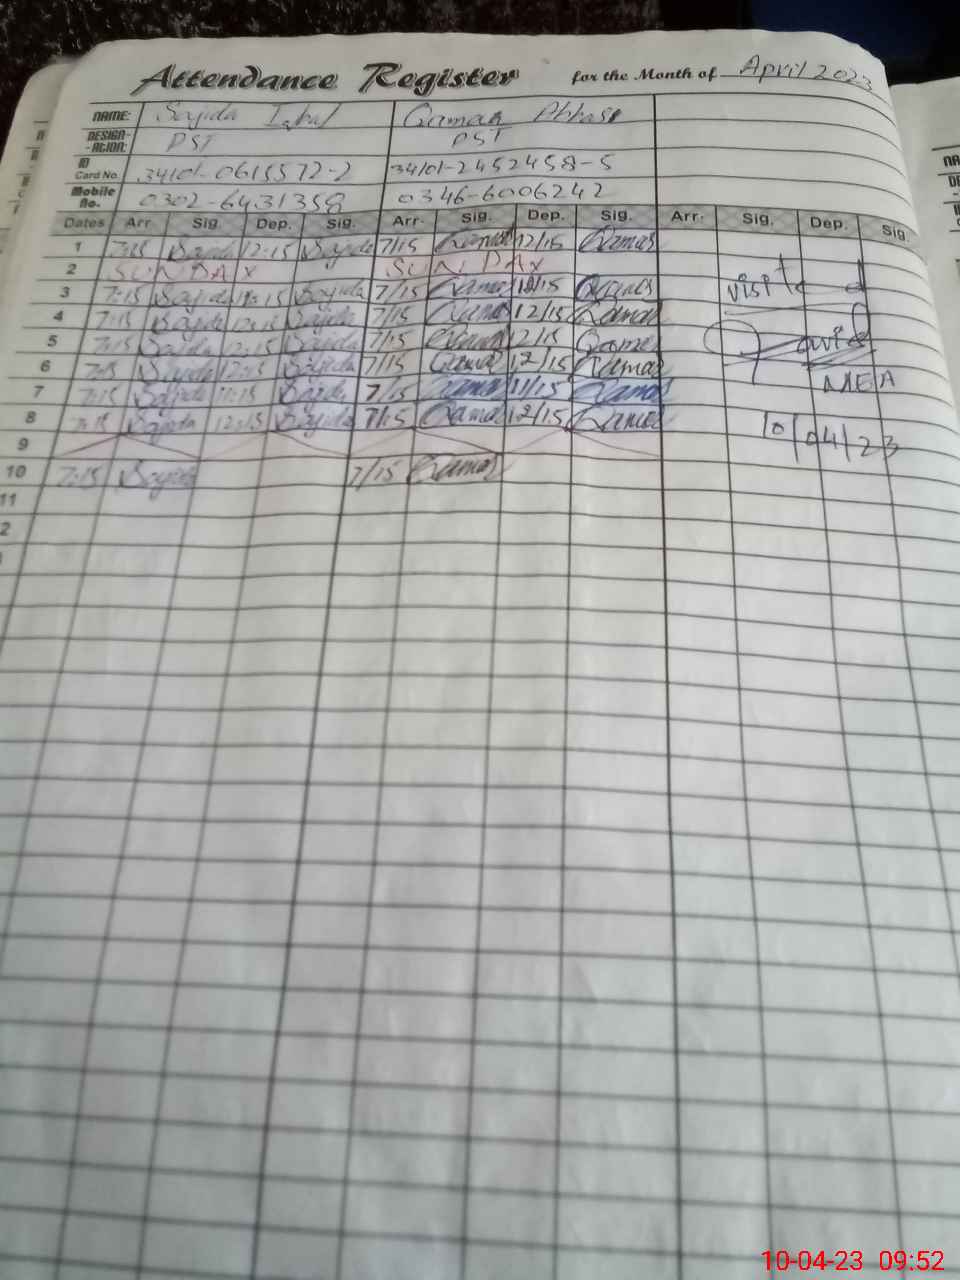 Attendance Register for the Month of April 2023
NAME: Sajida Iqbal Qamar Abbas
DESIGN-ATION: PST PST
ID Card No. 34101-0615572-2 34101-2452458-5
Mobile No. 0302-6431358 0346-6006242
Dates Arr. Sig. Dep. Sig. Arr. Sig. Dep. Sig. Arr. Sig. Dep. Sig.
1 7:15 Sajida 12:15 Sajida 7/15 Qamar 12/15 Qamar
2 SUNDAY SUNDAY
3 7:15 Sajida 12:15 Sajida 7/15 Qamar 12/15 Qamar visited
4 7:15 Sajida 12:15 Sajida 7/15 Qamar 12/15 Qamar
5 7:15 Sajida 12:15 Sajida 7/15 Qamar 12/15 Qamar
6 7:15 Sajida 12:15 Sajida 7/15 Qamar 12/15 Qamar
7 7:15 Sajida 11:15 Sajida 7/15 Qamar 11/15 Qamar MEA
8 7:15 Sajida 12:15 Sajida 7/15 Qamar 12/15 Qamar 10/04/23
9
10 7:15 Sajida 7/15 Qamar
11
2
10-04-23 09:52